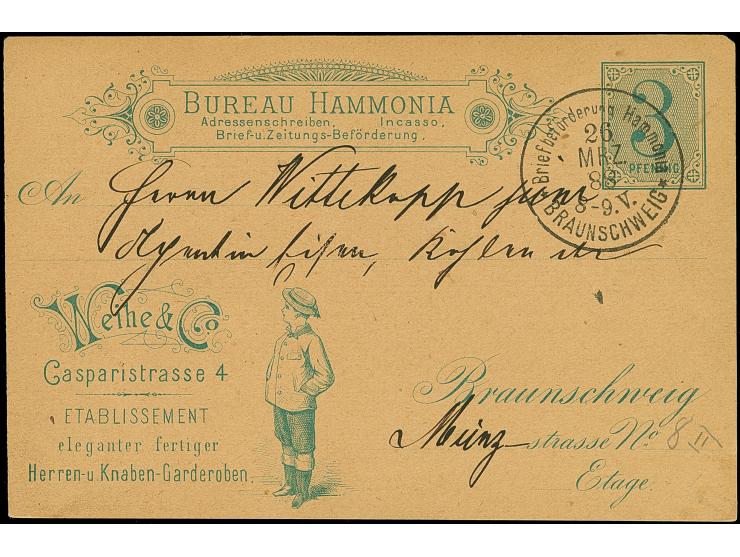 BUREAU HAMMONIA
Adressenschreiben, Incasso,
Brief-u.Zeitungs-Beförderung.
3
PFENNIG
Briefbeförderung Hammonia
26
MRZ.
88
8-9.V.
BRAUNSCHWEIG
An Herrn Wittekopp jun
Agent in Eisen, Kohlen etc
Weihe & Co
Casparistrasse 4
ETABLISSEMENT
eleganter fertiger
Herren-u. Knaben-Garderoben.
Braunschweig
Münz-strasse No. 8 II
Etage.